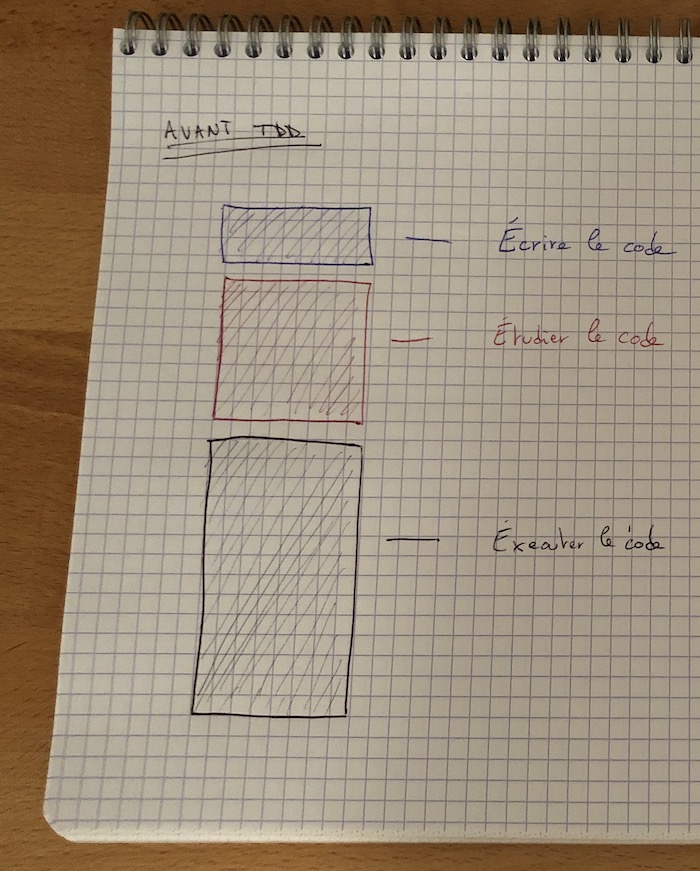 AVANT TDD
Écrire le code
Étudier le code
Éxecuter le code